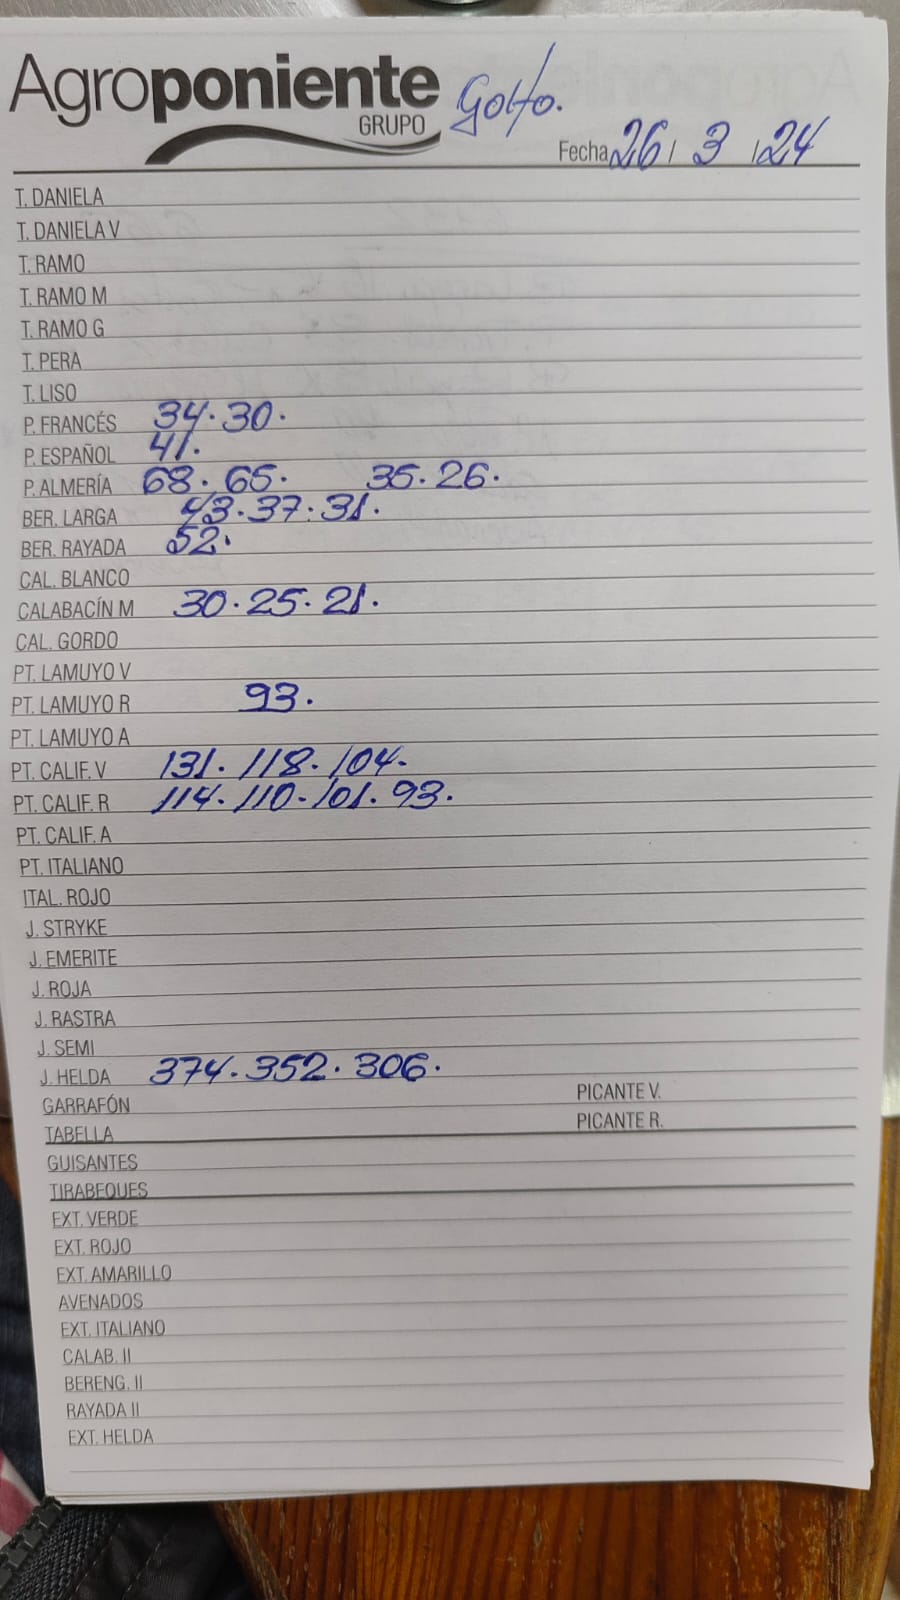 Agroponiente
GRUPO
Golfo.
Fecha 26 / 3 / 24
T. DANIELA
T. DANIELA V
T. RAMO
T. RAMO M
T. RAMO G
T. PERA
T. LISO
P. FRANCÉS 34. 30.
P. ESPAÑOL 41.
P. ALMERÍA 68. 65. 35. 26.
BER. LARGA 43. 37. 31.
BER. RAYADA 52.
CAL. BLANCO
CALABACÍN M 30. 25. 21.
CAL. GORDO
PT. LAMUYO V
PT. LAMUYO R 93.
PT. LAMUYO A
PT. CALIF. V 131. 118. 104.
PT. CALIF. R 114. 110. 101. 93.
PT. CALIF. A
PT. ITALIANO
ITAL. ROJO
J. STRYKE
J. EMERITE
J. ROJA
J. RASTRA
J. SEMI
J. HELDA 374. 352. 306.
GARRAFÓN PICANTE V.
TABELLA PICANTE R.
GUISANTES
TIRABEQUES
EXT. VERDE
EXT. ROJO
EXT. AMARILLO
AVENADOS
EXT. ITALIANO
CALAB. II
BERENG. II
RAYADA II
EXT. HELDA